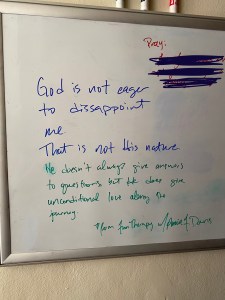 Pray:
God is not eager
to dissappoint
me
That is not his nature
He doesn't always give answers
to questions but He does give
unconditional love along the
journey.
from Therapy w/